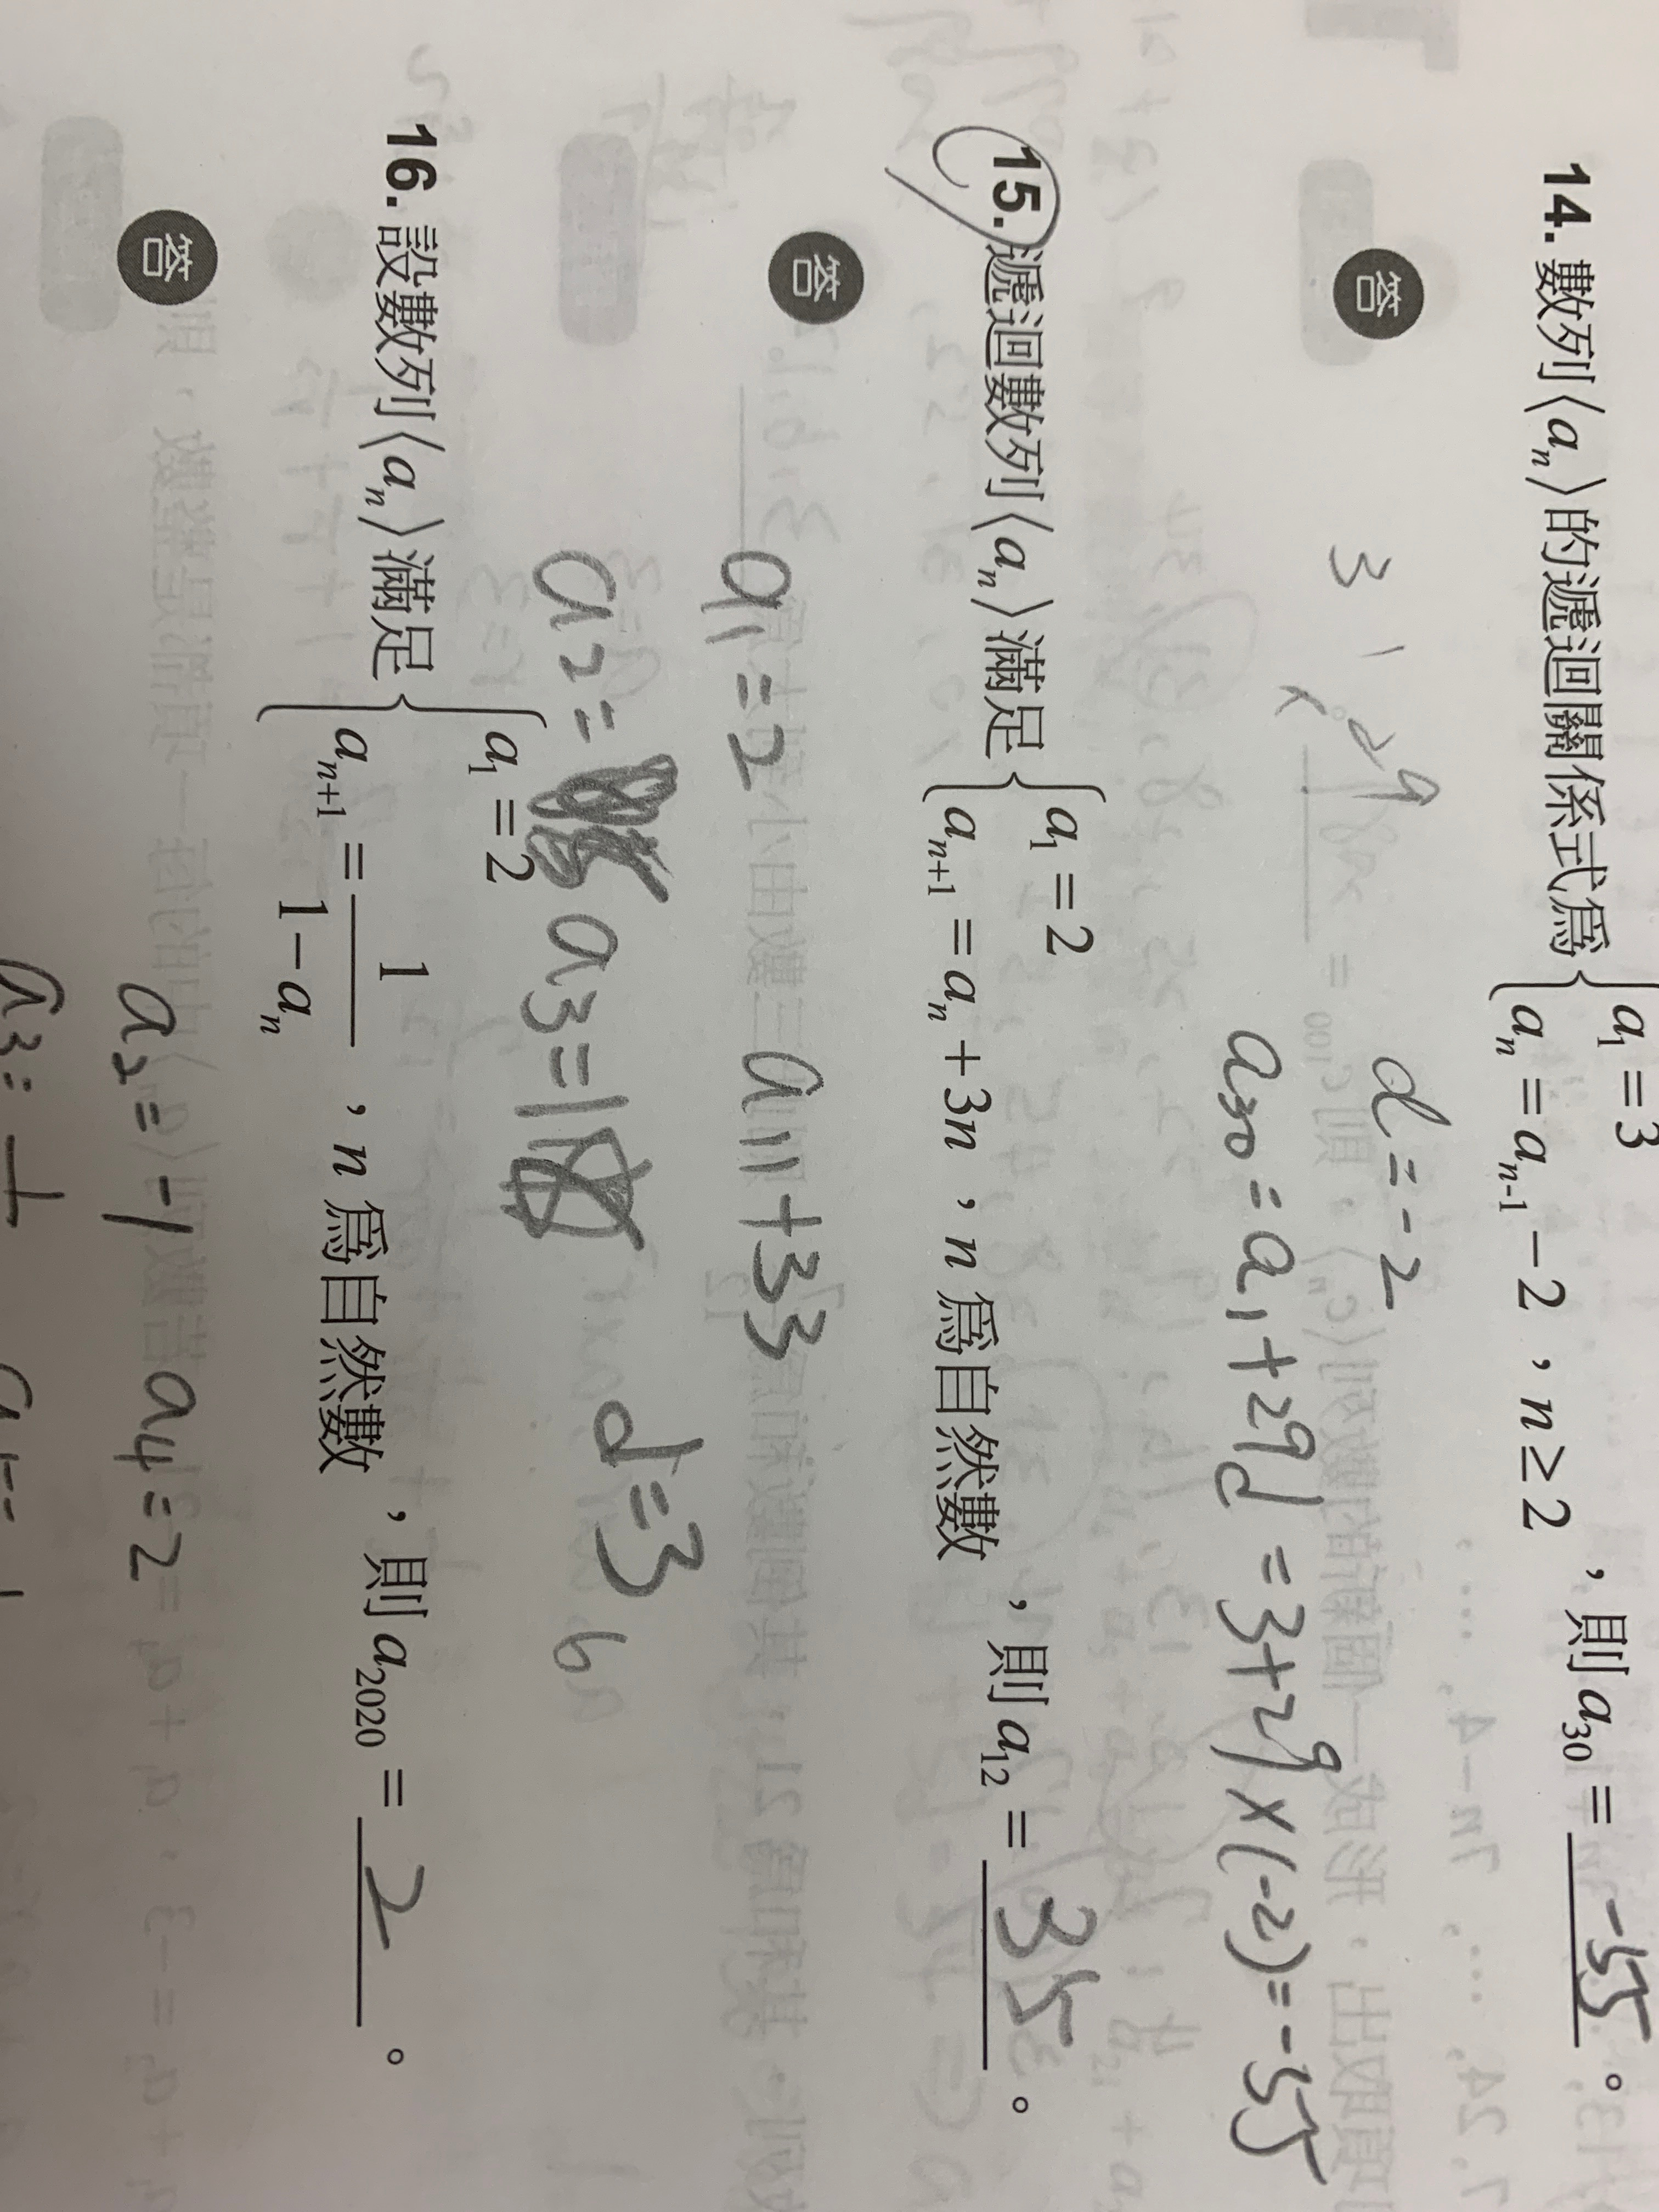 14. 數列⟨aₙ⟩的遞迴關係式為 { a₁ = 3
aₙ = aₙ₋₁ − 2 , n ≥ 2 , 則 a₃₀ = -55 。
答
d = -2
a₃₀ = a₁ + 29d = 3 + 29 × (-2) = -55
15. 遞迴數列⟨aₙ⟩滿足 { a₁ = 2
aₙ₊₁ = aₙ + 3n , n 為自然數 , 則 a₁₂ = 35 。
答
a₁ = 2 a₁₁ + 33
a₂ = a₃ = 1 d = 3
16. 設數列⟨aₙ⟩滿足 { a₁ = 2
aₙ₊₁ = 1/(1 − aₙ) , n 為自然數 , 則 a₂₀₂₀ = 2 。
答
a₂ = -1 a₄ = 2